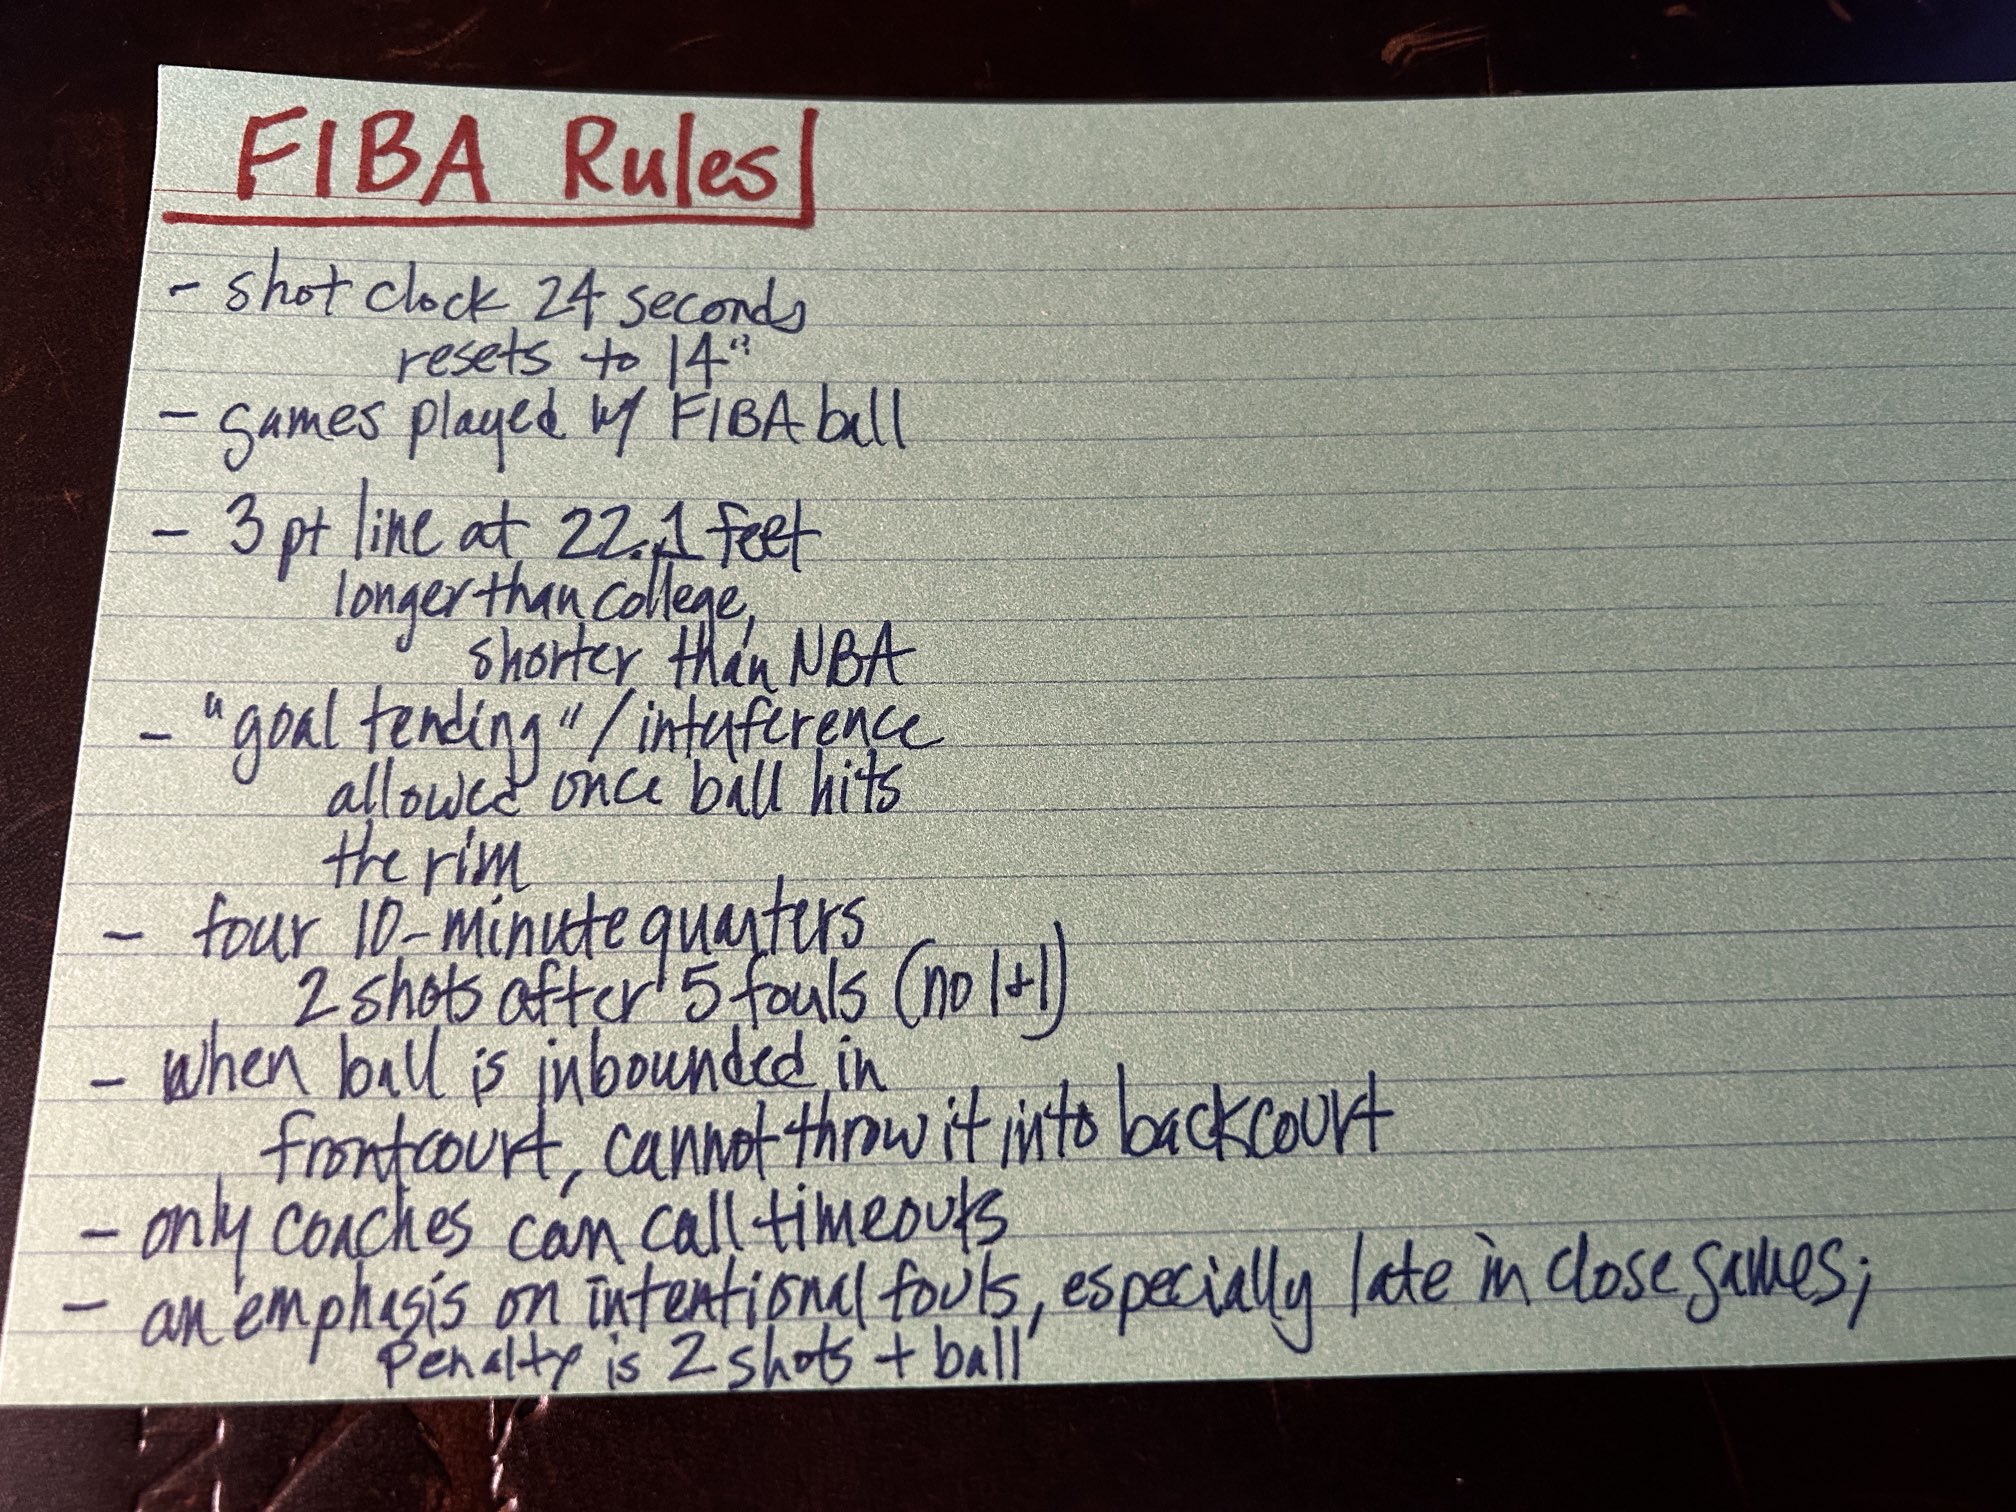 FIBA Rules
- shot clock 24 seconds
resets to 14"
- games played w/ FIBA ball
- 3 pt line at 22.1 feet
longer than college,
shorter than NBA
- "goal tending"/interference
allowed once ball hits
the rim
- four 10-minute quarters
2 shots after 5 fouls (no 1+1)
- when ball is inbounded in
frontcourt, cannot throw it into backcourt
- only coaches can call timeouts
- an emphasis on intentional fouls, especially late in close games;
Penalty is 2 shots + ball